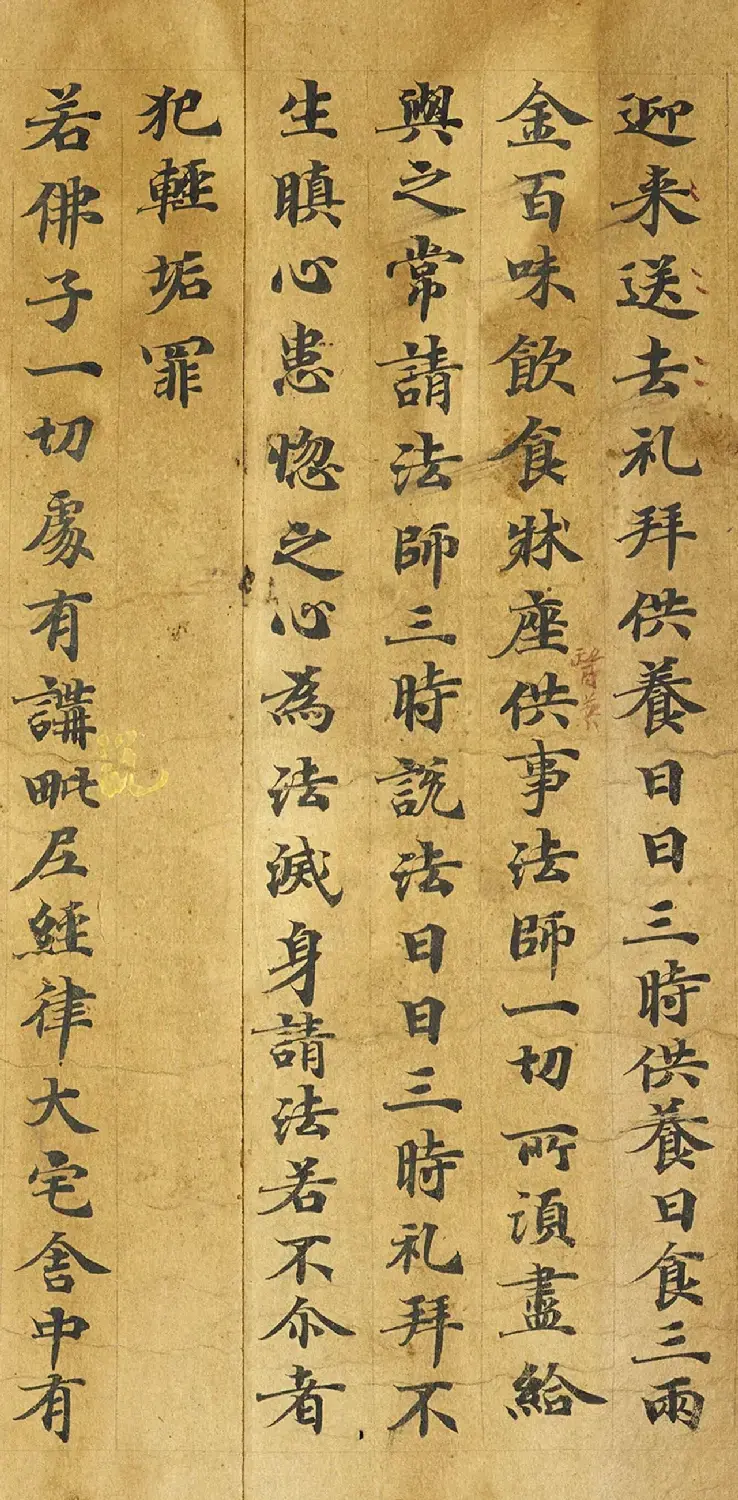 迎来送去礼拜供養日日三時供養日食三兩
金百味飲食牀座供事法師一切所湏盡給
與之常請法師三時説法日日三時礼拜不
生瞋心患惱之心為法滅身請法若不尒者
犯輕垢罪
若佛子一切處有講毗尼經律大宅舍中有